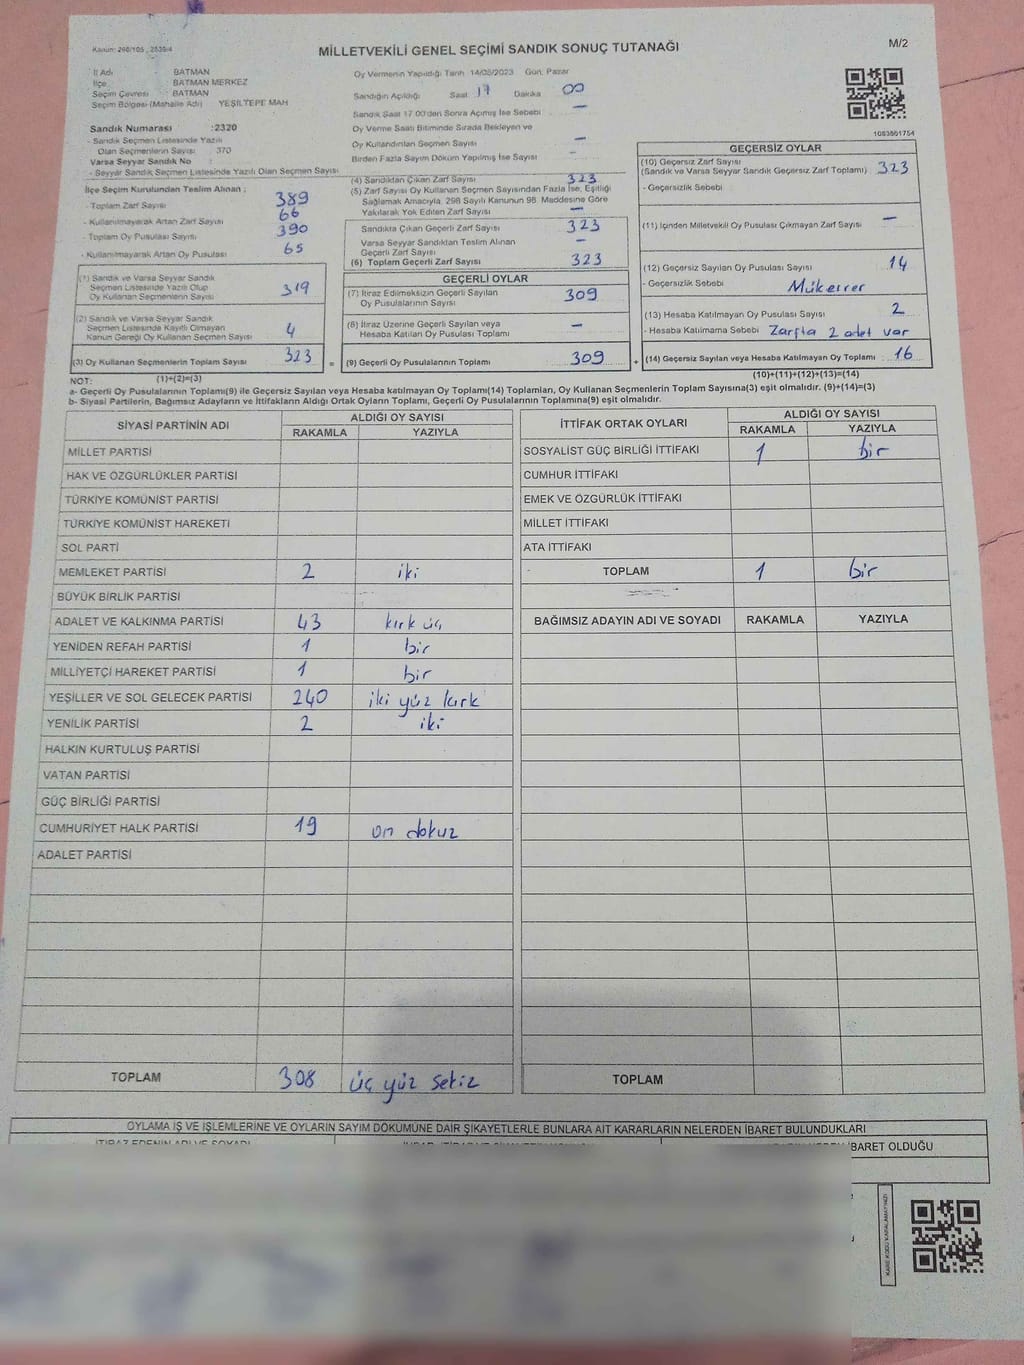 Kanun: 298/105, 2839/4
MİLLETVEKİLİ GENEL SEÇİMİ SANDIK SONUÇ TUTANAĞI
M/2
İl Adı : BATMAN
İlçe : BATMAN MERKEZ
Seçim Çevresi : BATMAN
Seçim Bölgesi (Mahalle Adı) : YEŞİLTEPE MAH
Sandık Numarası :2320
- Sandık Seçmen Listesinde Yazılı
Olan Seçmenlerin Sayısı : 370
Varsa Seyyar Sandık No :
- Seyyar Sandık Seçmen Listesinde Yazılı Olan Seçmen Sayısı
İlçe Seçim Kurulundan Teslim Alınan ;
- Toplam Zarf Sayısı 389
- Kullanılmayarak Artan Zarf Sayısı 66
- Toplam Oy Pusulası Sayısı 390
- Kullanılmayarak Artan Oy Pusulası 65
(1) Sandık ve Varsa Seyyar Sandık
Seçmen Listesinde Yazılı Olup
Oy Kullanan Seçmenlerin Sayısı 319
(2) Sandık ve Varsa Seyyar Sandık
Seçmen Listesinde Kayıtlı Olmayan
Kanun Gereği Oy Kullanan Seçmen Sayısı 4
(3) Oy Kullanan Seçmenlerin Toplam Sayısı 323
(1)+(2)=(3)
Oy Vermenin Yapıldığı Tarih 14/05/2023 Gün: Pazar
Sandığın Açıldığı Saat 17 Dakika 00
Sandık Saat 17.00'den Sonra Açımış İse Sebebi —
Oy Verme Saati Bitiminde Sırada Bekleyen ve
Oy Kullandırılan Seçmen Sayısı —
Birden Fazla Sayım Döküm Yapılmış İse Sayısı —
(4) Sandıktan Çıkan Zarf Sayısı 323
(5) Zarf Sayısı Oy Kullanan Seçmen Sayısından Fazla İse, Eşitliği
Sağlamak Amacıyla, 298 Sayılı Kanunun 98. Maddesine Göre
Yakılarak Yok Edilen Zarf Sayısı —
Sandıkta Çıkan Geçerli Zarf Sayısı 323
Varsa Seyyar Sandıktan Teslim Alınan
Geçerli Zarf Sayısı —
(6) Toplam Geçerli Zarf Sayısı 323
GEÇERLİ OYLAR
(7) İtiraz Edilmeksizin Geçerli Sayılan
Oy Pusulalarının Sayısı 309
(8) İtiraz Üzerine Geçerli Sayılan veya
Hesaba Katılan Oy Pusulaları Toplamı —
= (9) Geçerli Oy Pusulalarının Toplamı 309 +
1083801754
GEÇERSİZ OYLAR
(10) Geçersiz Zarf Sayısı
(Sandık ve Varsa Seyyar Sandık Geçersiz Zarf Toplamı) : 323
- Geçersizlik Sebebi
(11) İçinden Milletvekili Oy Pusulası Çıkmayan Zarf Sayısı —
(12) Geçersiz Sayılan Oy Pusulası Sayısı 14
- Geçersizlik Sebebi Mükerrer
(13) Hesaba Katılmayan Oy Pusulası Sayısı 2
- Hesaba Katılmama Sebebi Zarfta 2 adet var
(14) Geçersiz Sayılan veya Hesaba Katılmayan Oy Toplamı : 16
(10)+(11)+(12)+(13)=(14)
NOT:
a- Geçerli Oy Pusulaların Toplamı(9) ile Geçersiz Sayılan veya Hesaba katılmayan Oy Toplamı(14) Toplamları, Oy Kullanan Seçmenlerin Toplam Sayısına(3) eşit olmalıdır. (9)+(14)=(3)
b- Siyasi Partilerin, Bağımsız Adayların ve İttifakların Aldığı Ortak Oyların Toplamı, Geçerli Oy Pusulalarının Toplamına(9) eşit olmalıdır.
SİYASİ PARTİNİN ADI
ALDIĞI OY SAYISI
RAKAMLA YAZIYLA
MİLLET PARTİSİ
HAK VE ÖZGÜRLÜKLER PARTİSİ
TÜRKİYE KOMÜNİST PARTİSİ
TÜRKİYE KOMÜNİST HAREKETİ
SOL PARTİ
MEMLEKET PARTİSİ 2 iki
BÜYÜK BİRLİK PARTİSİ
ADALET VE KALKINMA PARTİSİ 43 kırk üç
YENİDEN REFAH PARTİSİ 1 bir
MİLLİYETÇİ HAREKET PARTİSİ 1 bir
YEŞİLLER VE SOL GELECEK PARTİSİ 240 iki yüz kırk
YENİLİK PARTİSİ 2 iki
HALKIN KURTULUŞ PARTİSİ
VATAN PARTİSİ
GÜÇ BİRLİĞİ PARTİSİ
CUMHURİYET HALK PARTİSİ 19 on dokuz
ADALET PARTİSİ
TOPLAM 308 üç yüz sekiz
İTTİFAK ORTAK OYLARI
ALDIĞI OY SAYISI
RAKAMLA YAZIYLA
SOSYALİST GÜÇ BİRLİĞİ İTTİFAKI 1 bir
CUMHUR İTTİFAKI
EMEK VE ÖZGÜRLÜK İTTİFAKI
MİLLET İTTİFAKI
ATA İTTİFAKI
TOPLAM 1 bir
BAĞIMSIZ ADAYIN ADI VE SOYADI RAKAMLA YAZIYLA
TOPLAM
OYLAMA İŞ VE İŞLEMLERİNE VE OYLARIN SAYIM DÖKÜMÜNE DAİR ŞİKAYETLERLE BUNLARA AİT KARARLARIN NELERDEN İBARET BULUNDUKLARI
İTİRAZ EDENİN ADI VE SOYADI
İBARET OLDUĞU
KARE KODU KAPALAMAYINIZ!